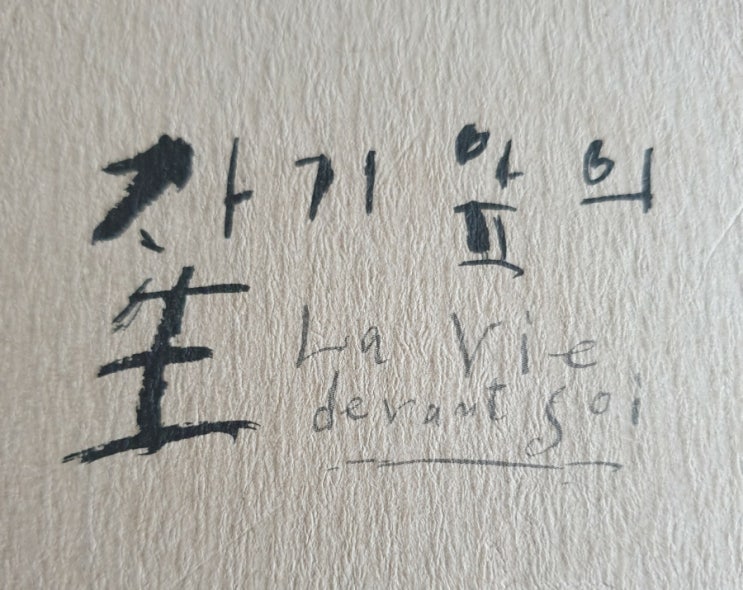 자기 앞의
生
La Vie
devant soi